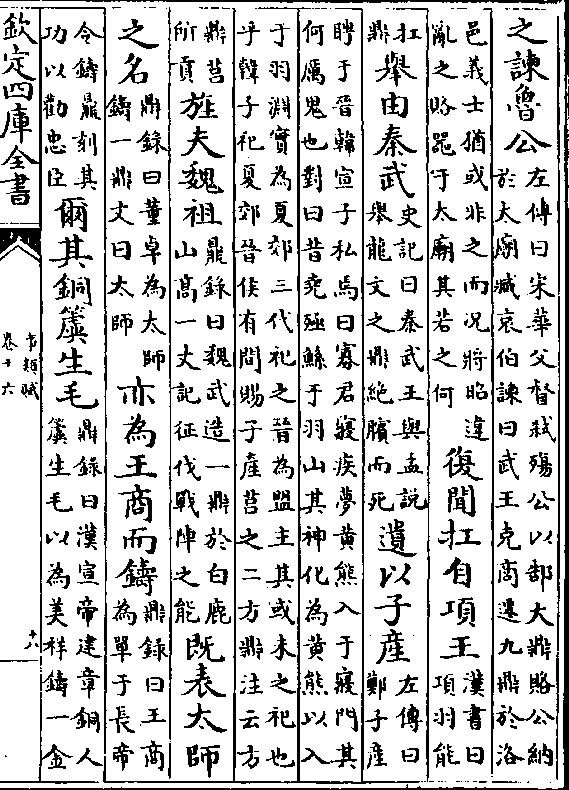 之諫魯公
左傳曰宋華父督弒殤公以郜大鼎賂公納
於太廟臧哀伯諫曰武王克商遷九鼎於洛
邑義士猶或非之而况將昭違
亂之賂器于太廟其若之何
復聞扛自項王
漢書曰
項羽能
扛
鼎
舉由秦武
史記曰秦武王與孟説
舉龍文之鼎絶臏而死
遺以子產
左傳曰
鄭子產
聘于晉韓宣子私焉曰寡君寢疾夢黄熊入于寢門其
何厲鬼也對曰昔堯殛鯀于羽山其神化為黄熊以入
于羽淵實為夏郊三代祀之晉為盟主其或未之祀也
乎韓子祀夏郊晉侯有間賜子產莒之二方鼎注云方
鼎莒
所貢
旌夫魏祖
鼎錄曰魏武造一鼎於白鹿
山高一丈記征伐戰陣之能
既表太師
之名
鼎錄曰董卓為太師
鑄一鼎文曰太師
亦為王商而鑄
鼎錄曰王商
為單于長帝
令鑄鼎刻其
功以勸忠臣
爾其銅簴生毛
鼎錄曰漢宣帝建章銅人
簴生毛以為美祥鑄一金
欽定四庫全書
事類賦
卷十六
十八